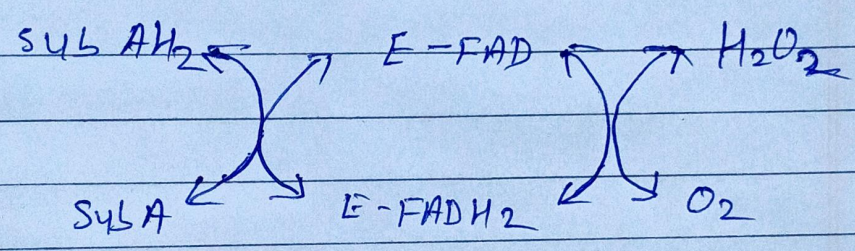 Sub AH2 E-FAD H2O2
Sub A E-FADH2 O2